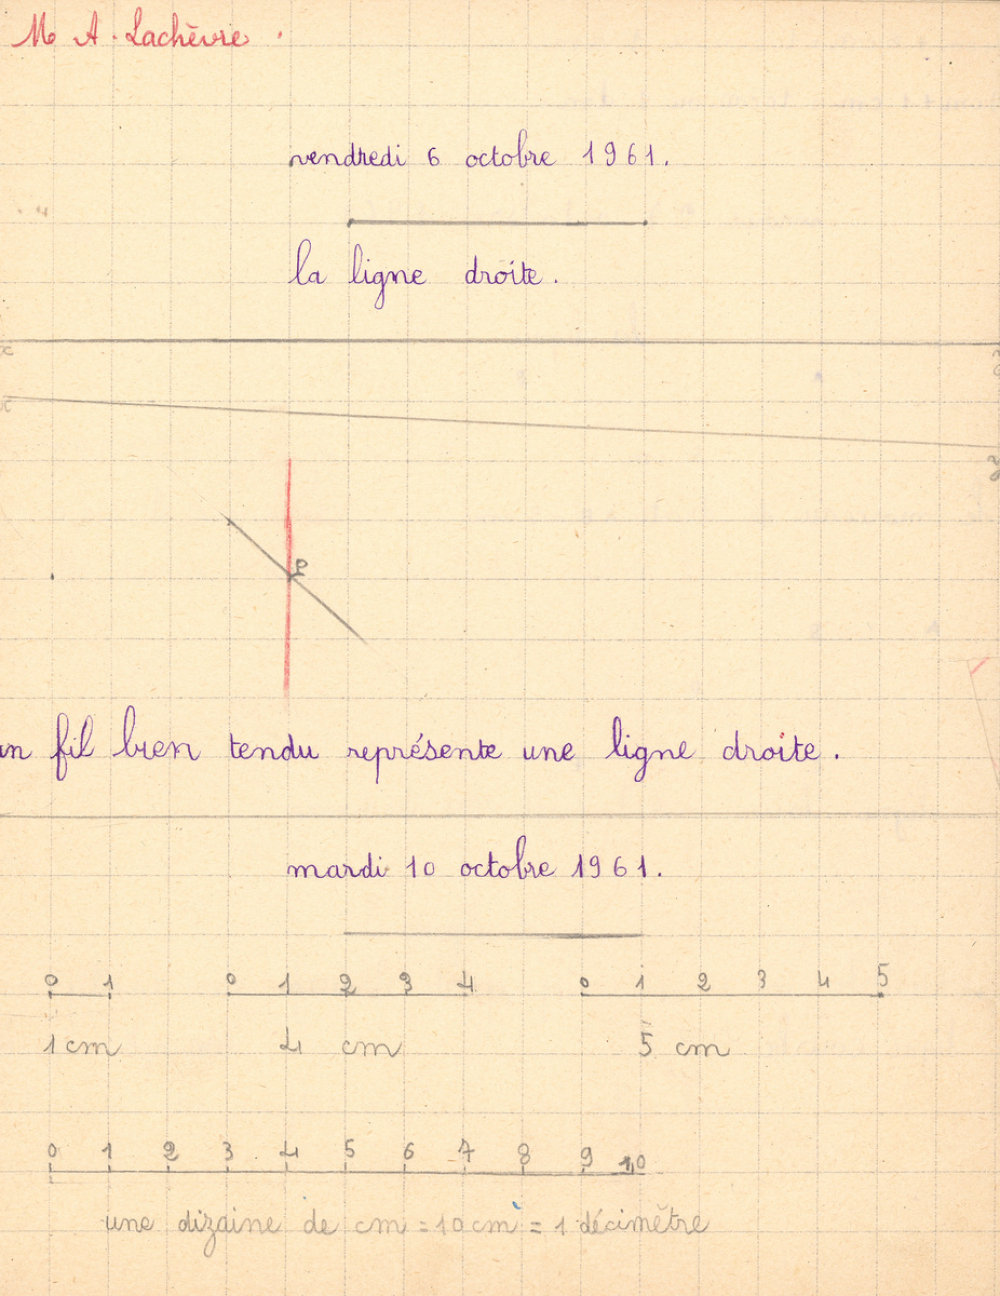 M A. Lachèvre.
vendredi 6 octobre 1961.
la ligne droite.
x
x
y
P
un fil bien tendu représente une ligne droite.
mardi 10 octobre 1961.
0 1 0 1 2 3 4 0 1 2 3 4 5
1 cm 4 cm 5 cm
0 1 2 3 4 5 6 7 8 9 10
une dizaine de cm = 10 cm = 1 décimètre